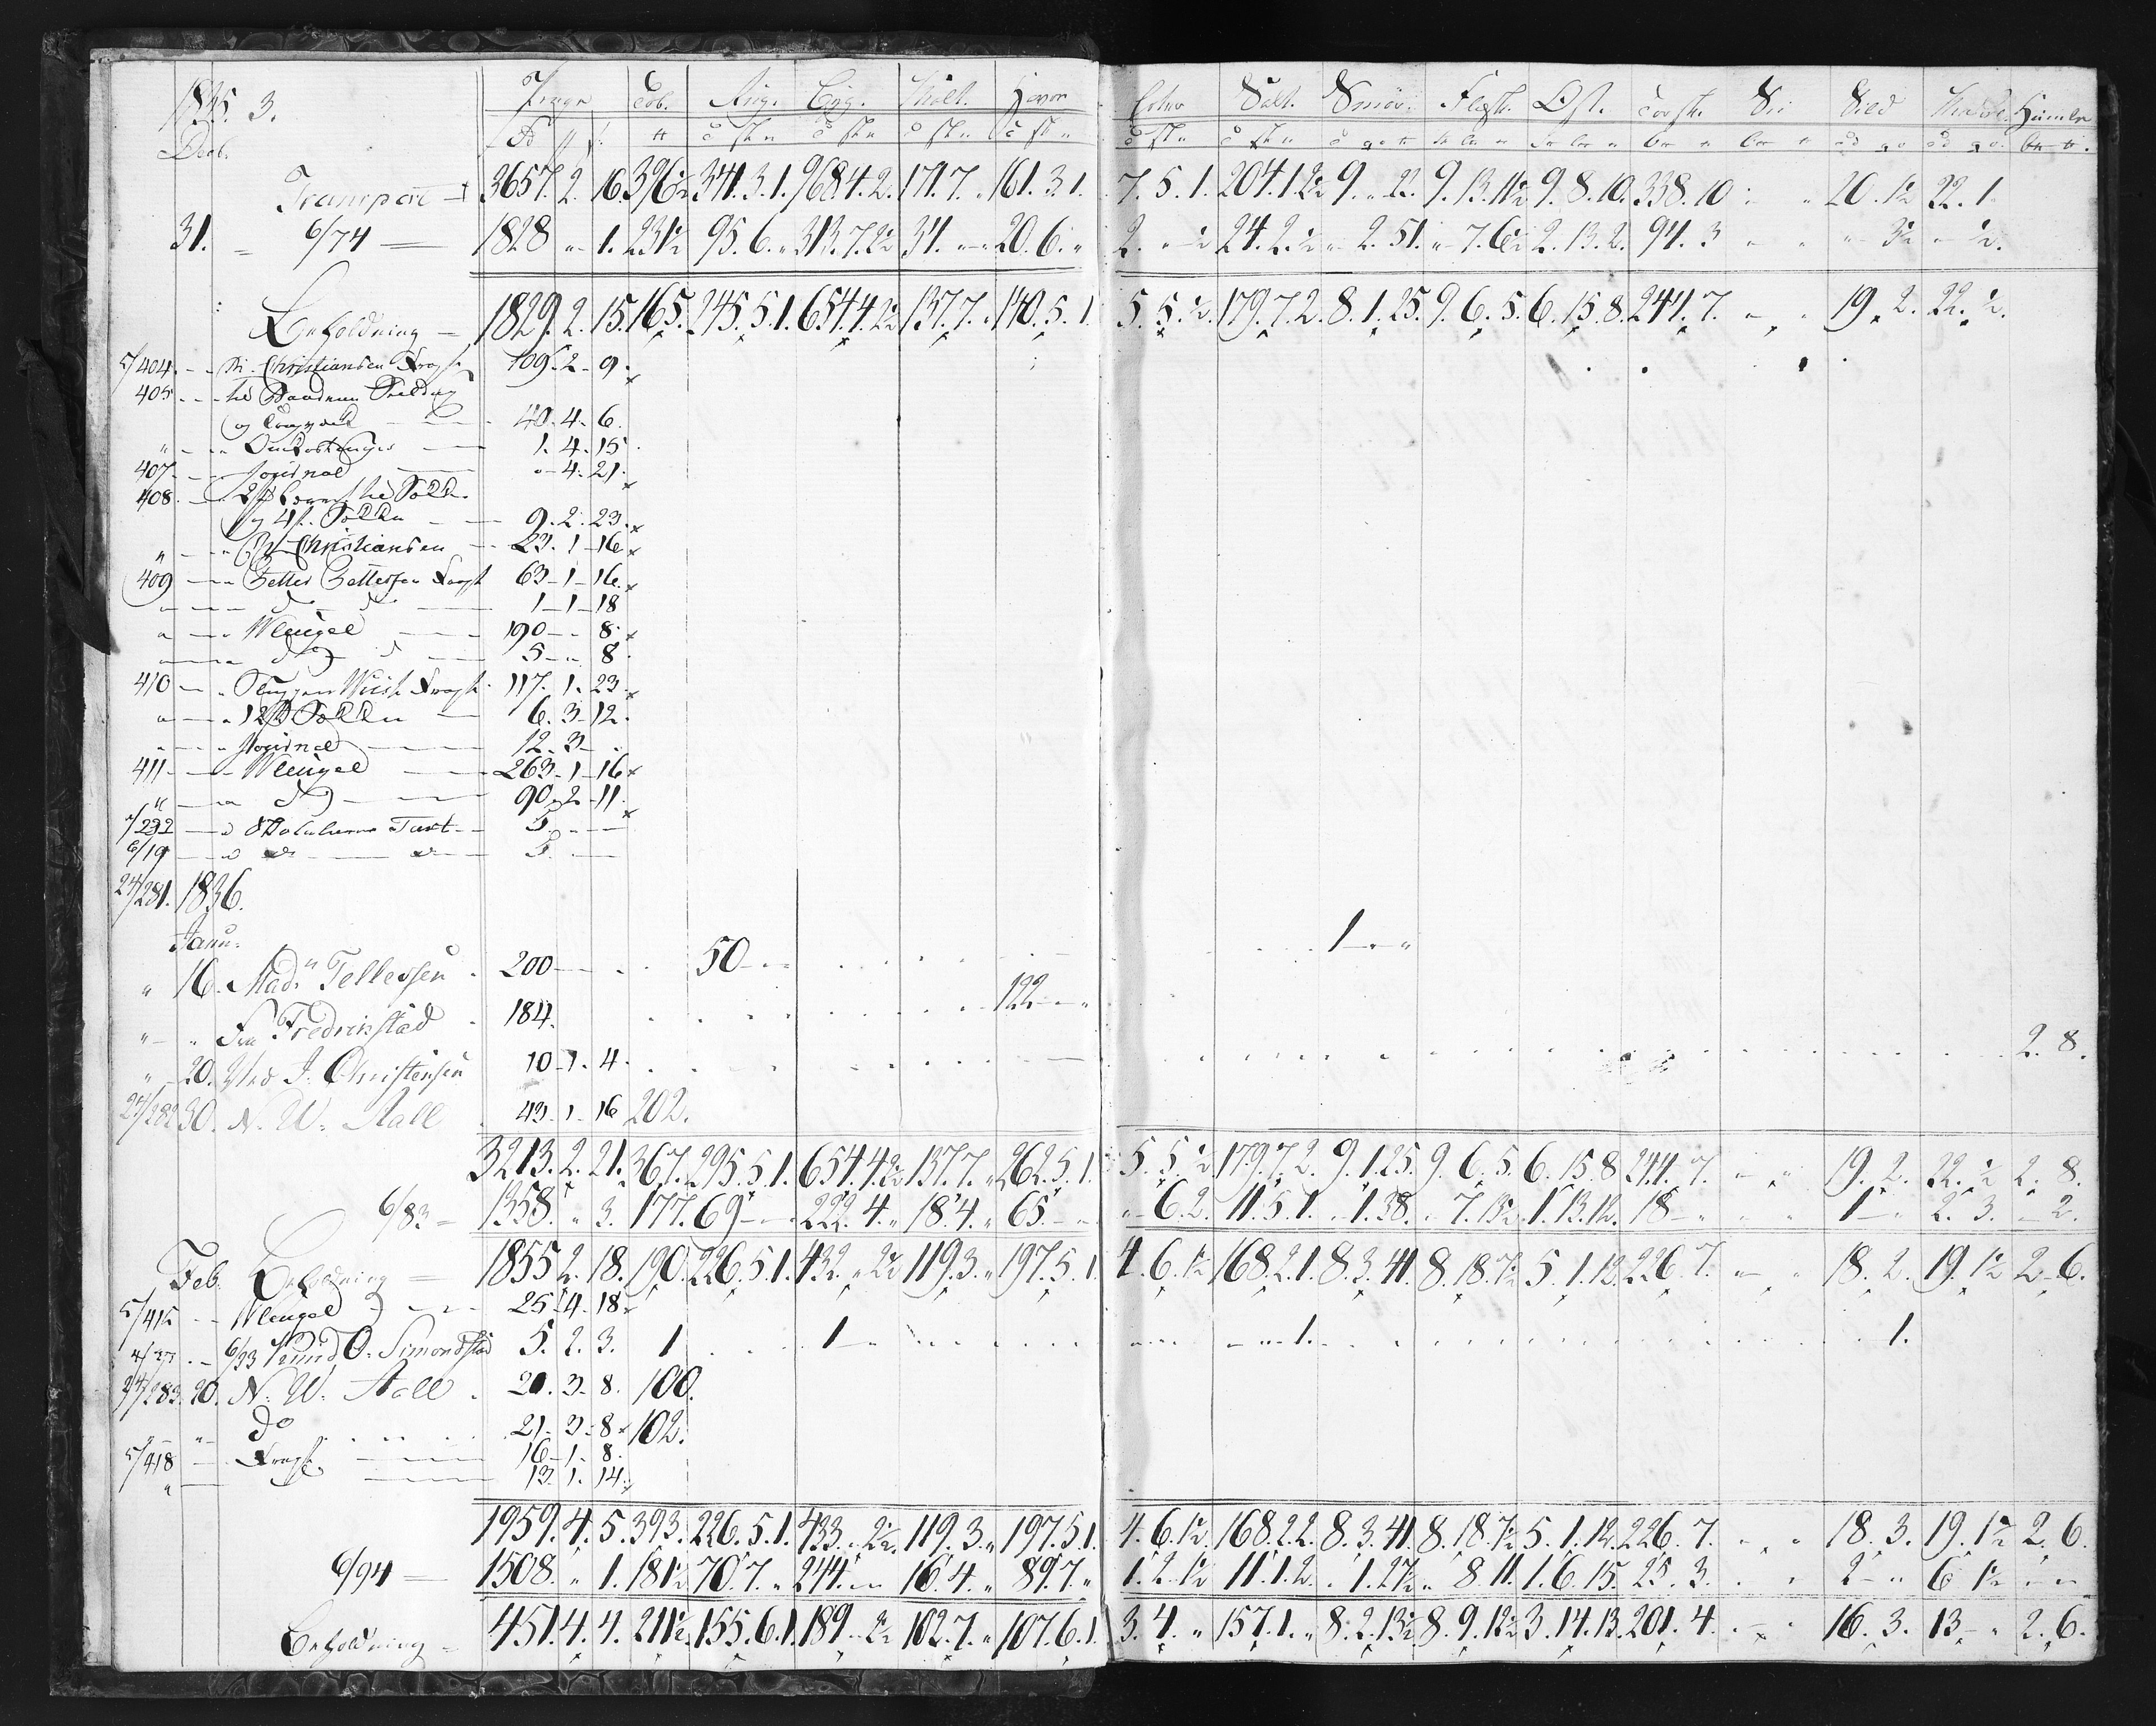 1835. 3. Penge Tob. Rug. Byg. Malt. Havre Erter Salt. Smør. Flesk. Ost. Torsk. Sei Sild Humle
Decb.
Transport 3657. 2. 16. 396½ 341. 3. 1. 968. 4. 2. 171. 7. „ 161. 3. 1. 7. 5. 1. 204. 1. 2½ 9. „ 22. 9. 13. 11½ 9. 8. 10. 338. 10 „ „ 20. 1½ 22. 1.
31. 6/74 1828 „ 1. 231½ 95. 6. „ 313. 7. 2½ 34. „ „ 20. 6. „ 2. „ ½ 24. 2. ½ „ 2. 51. „ 7. 6½ 2. 13. 2. 94. 3 „ „ „ 3½ „ ½.
Beholdning 1829. 2. 15. 165. 245. 5. 1. 654. 4. 2½ 137. 7. „ 140. 5. 1. 5. 5. ½. 179. 7. 2. 8. 1. 25. 9. 6. 5. 6. 15. 8. 244. 7. „ „ 19. 2. 22. ½.
5/404 Christiansen Fragt 109. 2 - 9.
405 til
og 40. 4. 6.
„ Omkostninger 1. 4. 15
407. Journal „ 4. 21.
408.
og 9. 2. 23.
„ Christiansen 23. 1 - 16
409 Petter Pettersen Fragt 63 - 1 - 16.
„ do do 1 - 1 - 18
„ Wleugel 190 - „ 8.
„ do 5 - „ 8.
410 Fragt 117. 1. 23
„ 6. 3 - 12.
„ Journal 12. 3 -
411 Wleugel 263 - 1 - 16
„ do 90. 2 - 11.
/232 5. - -
6/19 do do 5. -
24/281. 1836.
Janu:
„ 16. Mad. Tellevsen 200 50 1 - „
„ „ Fra Fredrikstad 184. 122 - „
„ 20. Ved J. Christensen 10. 1. 4. 2. 8.
24/282 30. N. W. Aall 43. 1 - 16 202.
3213. 2. 21. 367. 295. 5. 1. 654. 4. 2½ 137. 7. „ 262. 5. 1. 5. 5. ½. 179. 7. 2. 9. 1. 25. 9. 6. 5. 6. 15. 8 244. 7. „ „ 19. 2. 22. ½ 2. 8.
6/83 1358. „ 3. 177. 69 - 222. 4. „ 18. 4. „ 65. - „ „ 6. 2. 11. 5. 1. „ 1. 38. „ 7. 13½ 1. 13. 12. 18 - „ 1 - „ 2. 3. - 2.
Feb. Beholdning 1855 2. 18. 190. 226. 5. 1. 432. „ 2½ 119. 3. „ 197. 5. 1. 4. 6. 1½ 168. 2. 1. 8. 3. 41. 8. 18. 7½ 5. 1. 12. 226. 7. „ „ 18. 2. 19. 1½ 2 - 6.
5/415 Wleugel 25. 4. 18
6/93 O. Simonstad 5. 2. 3. 1 1 1. 1.
24/283. 20. N. W. Aall 20. 3 - 8. 100.
do 21. 3 - 8 102.
5/418 Fragt 16 - 1. 8.
„ 13. 1. 14.
1959. 4. 5. 393. 226. 5. 1. 433. „ 2½. 119. 3. „ 197. 5. 1. 4. 6. 1½ 168. 2. 2. 8. 3. 41. 8. 18. 7½ 5. 1. 12. 226. 7. „ „ 18. 3. 19. 1½ 2. 6.
6/94 1508. „ 1. 181½ 70. 7. „ 244. „ 16. 4. „ 89. 7. „ 1. 2. 1½ 11. 1. 2. „ 1. 27½ „ 8. 11. 1. 6. 15. 25. 3. „ 2 - „ 6 1½ „ „
Beholdning 451. 4. 4. 211½. 155. 6. 1. 189 „ 2½ 102. 7. „ 107. 6. 1. 3. 4. „ 157. 1. „ 8. 2. 13½ 8. 9. 12½ 3. 14. 13. 201. 4. „ 16. 3. 13 - „ 2. 6.